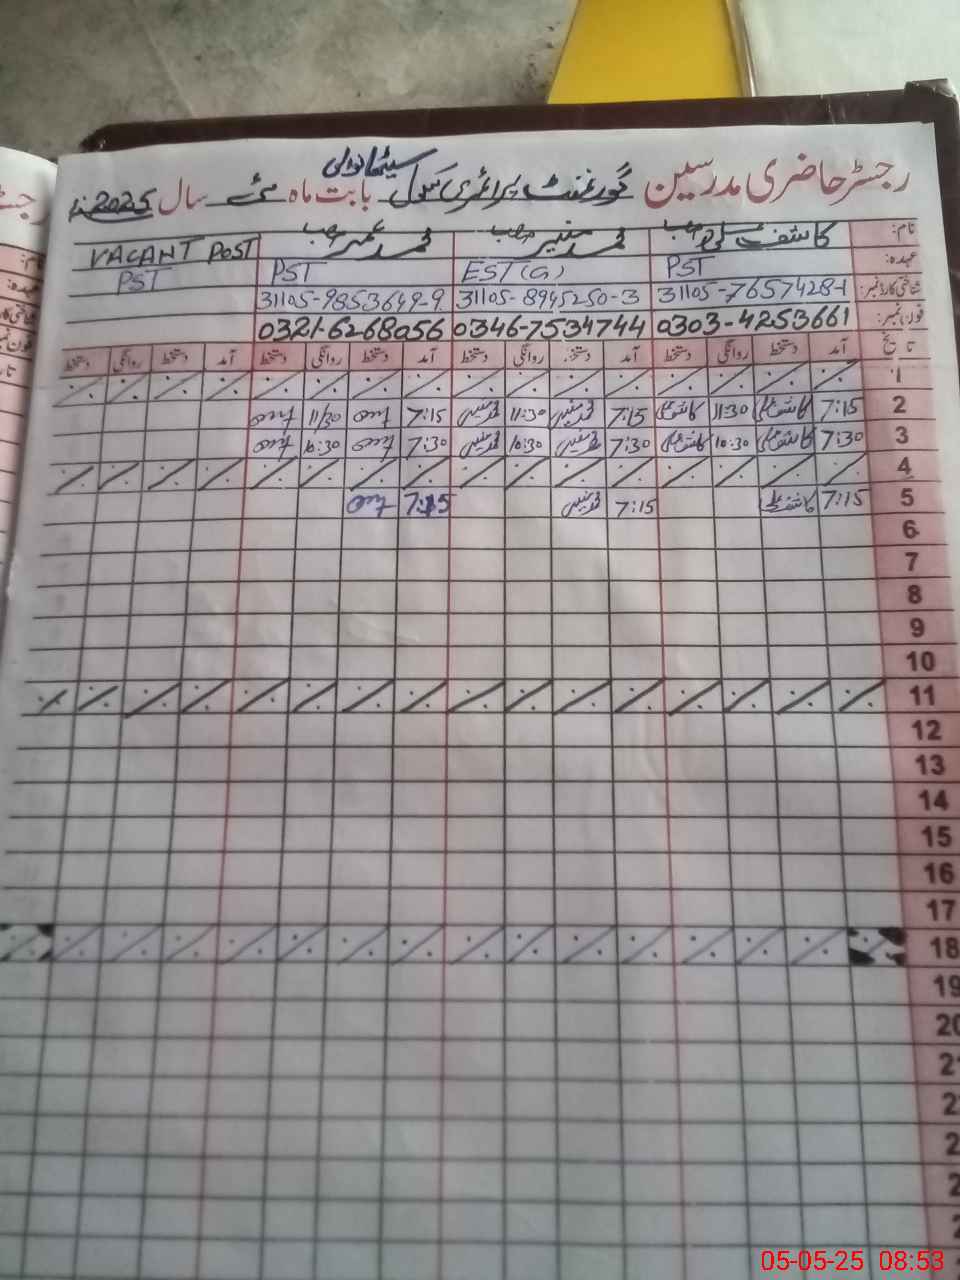 سیٹھانوالی
رجسٹر حاضری مدرسین گورنمنٹ پرائمری سکول بابت ماہ مئی سال 2025ء
نام: کاشف علی صاحب محمد منیر صاحب محمد عمیر صاحب VACANT POST
عہدہ: PST EST(G) PST PST
شناختی کارڈ نمبر: 31105-7657428-1 31105-8945250-3 31105-9853649-9
فون نمبر: 0303-4253661 0346-7534744 0321-6268056
تاریخ آمد دستخط روانگی دستخط آمد دستخط روانگی دستخط آمد دستخط روانگی دستخط آمد دستخط روانگی دستخط
1
2 7:15 کاشف علی 11:30 کاشف علی 7:15 محمد منیر 11:30 محمد منیر 7:15 11/30
3 7:30 کاشف علی 10:30 کاشف علی 7:30 محمد منیر 10:30 محمد منیر 7:30 10:30
4
5 7:15 کاشف علی 7:15 محمد منیر 7:15
6
7
8
9
10
11
12
13
14
15
16
17
18
19
20
05-05-25 08:53